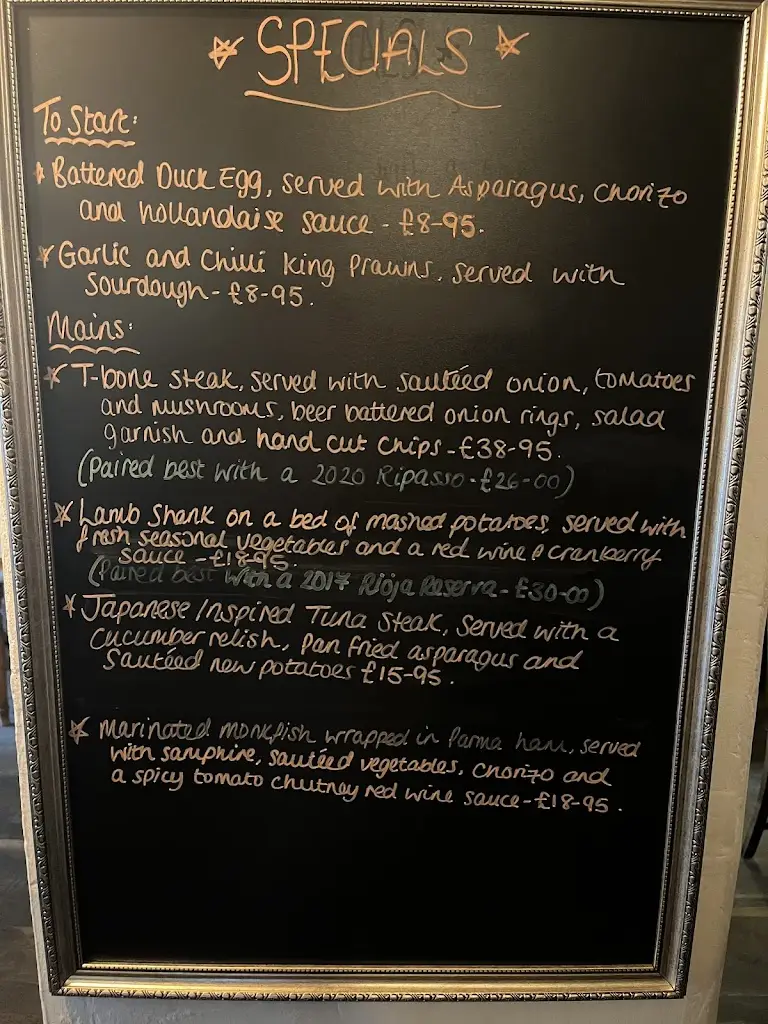 SPECIALS
To Start:
Battered Duck Egg, served with Asparagus, chorizo
and hollandaise sauce - £8-95.
Garlic and Chilli king Prawns, served with
Sourdough - £8-95.
Mains:
T-bone steak, served with sautéed onion, tomatoes
and mushrooms, beer battered onion rings, salad
garnish and hand cut chips - £38-95.
(Paired best with a 2020 Ripasso - £26-00)
Lamb Shank on a bed of mashed potatoes, served with
fresh seasonal vegetables and a red wine & cranberry
sauce - £18-95.
(Paired best with a 2017 Rioja Reserva - £30-00)
Japanese Inspired Tuna Steak, served with a
cucumber relish, pan fried asparagus and
sautéed new potatoes £15-95.
Marinated monkfish wrapped in Parma ham, served
with samphire, sautéed vegetables, chorizo and
a spicy tomato chutney red wine sauce - £18-95.